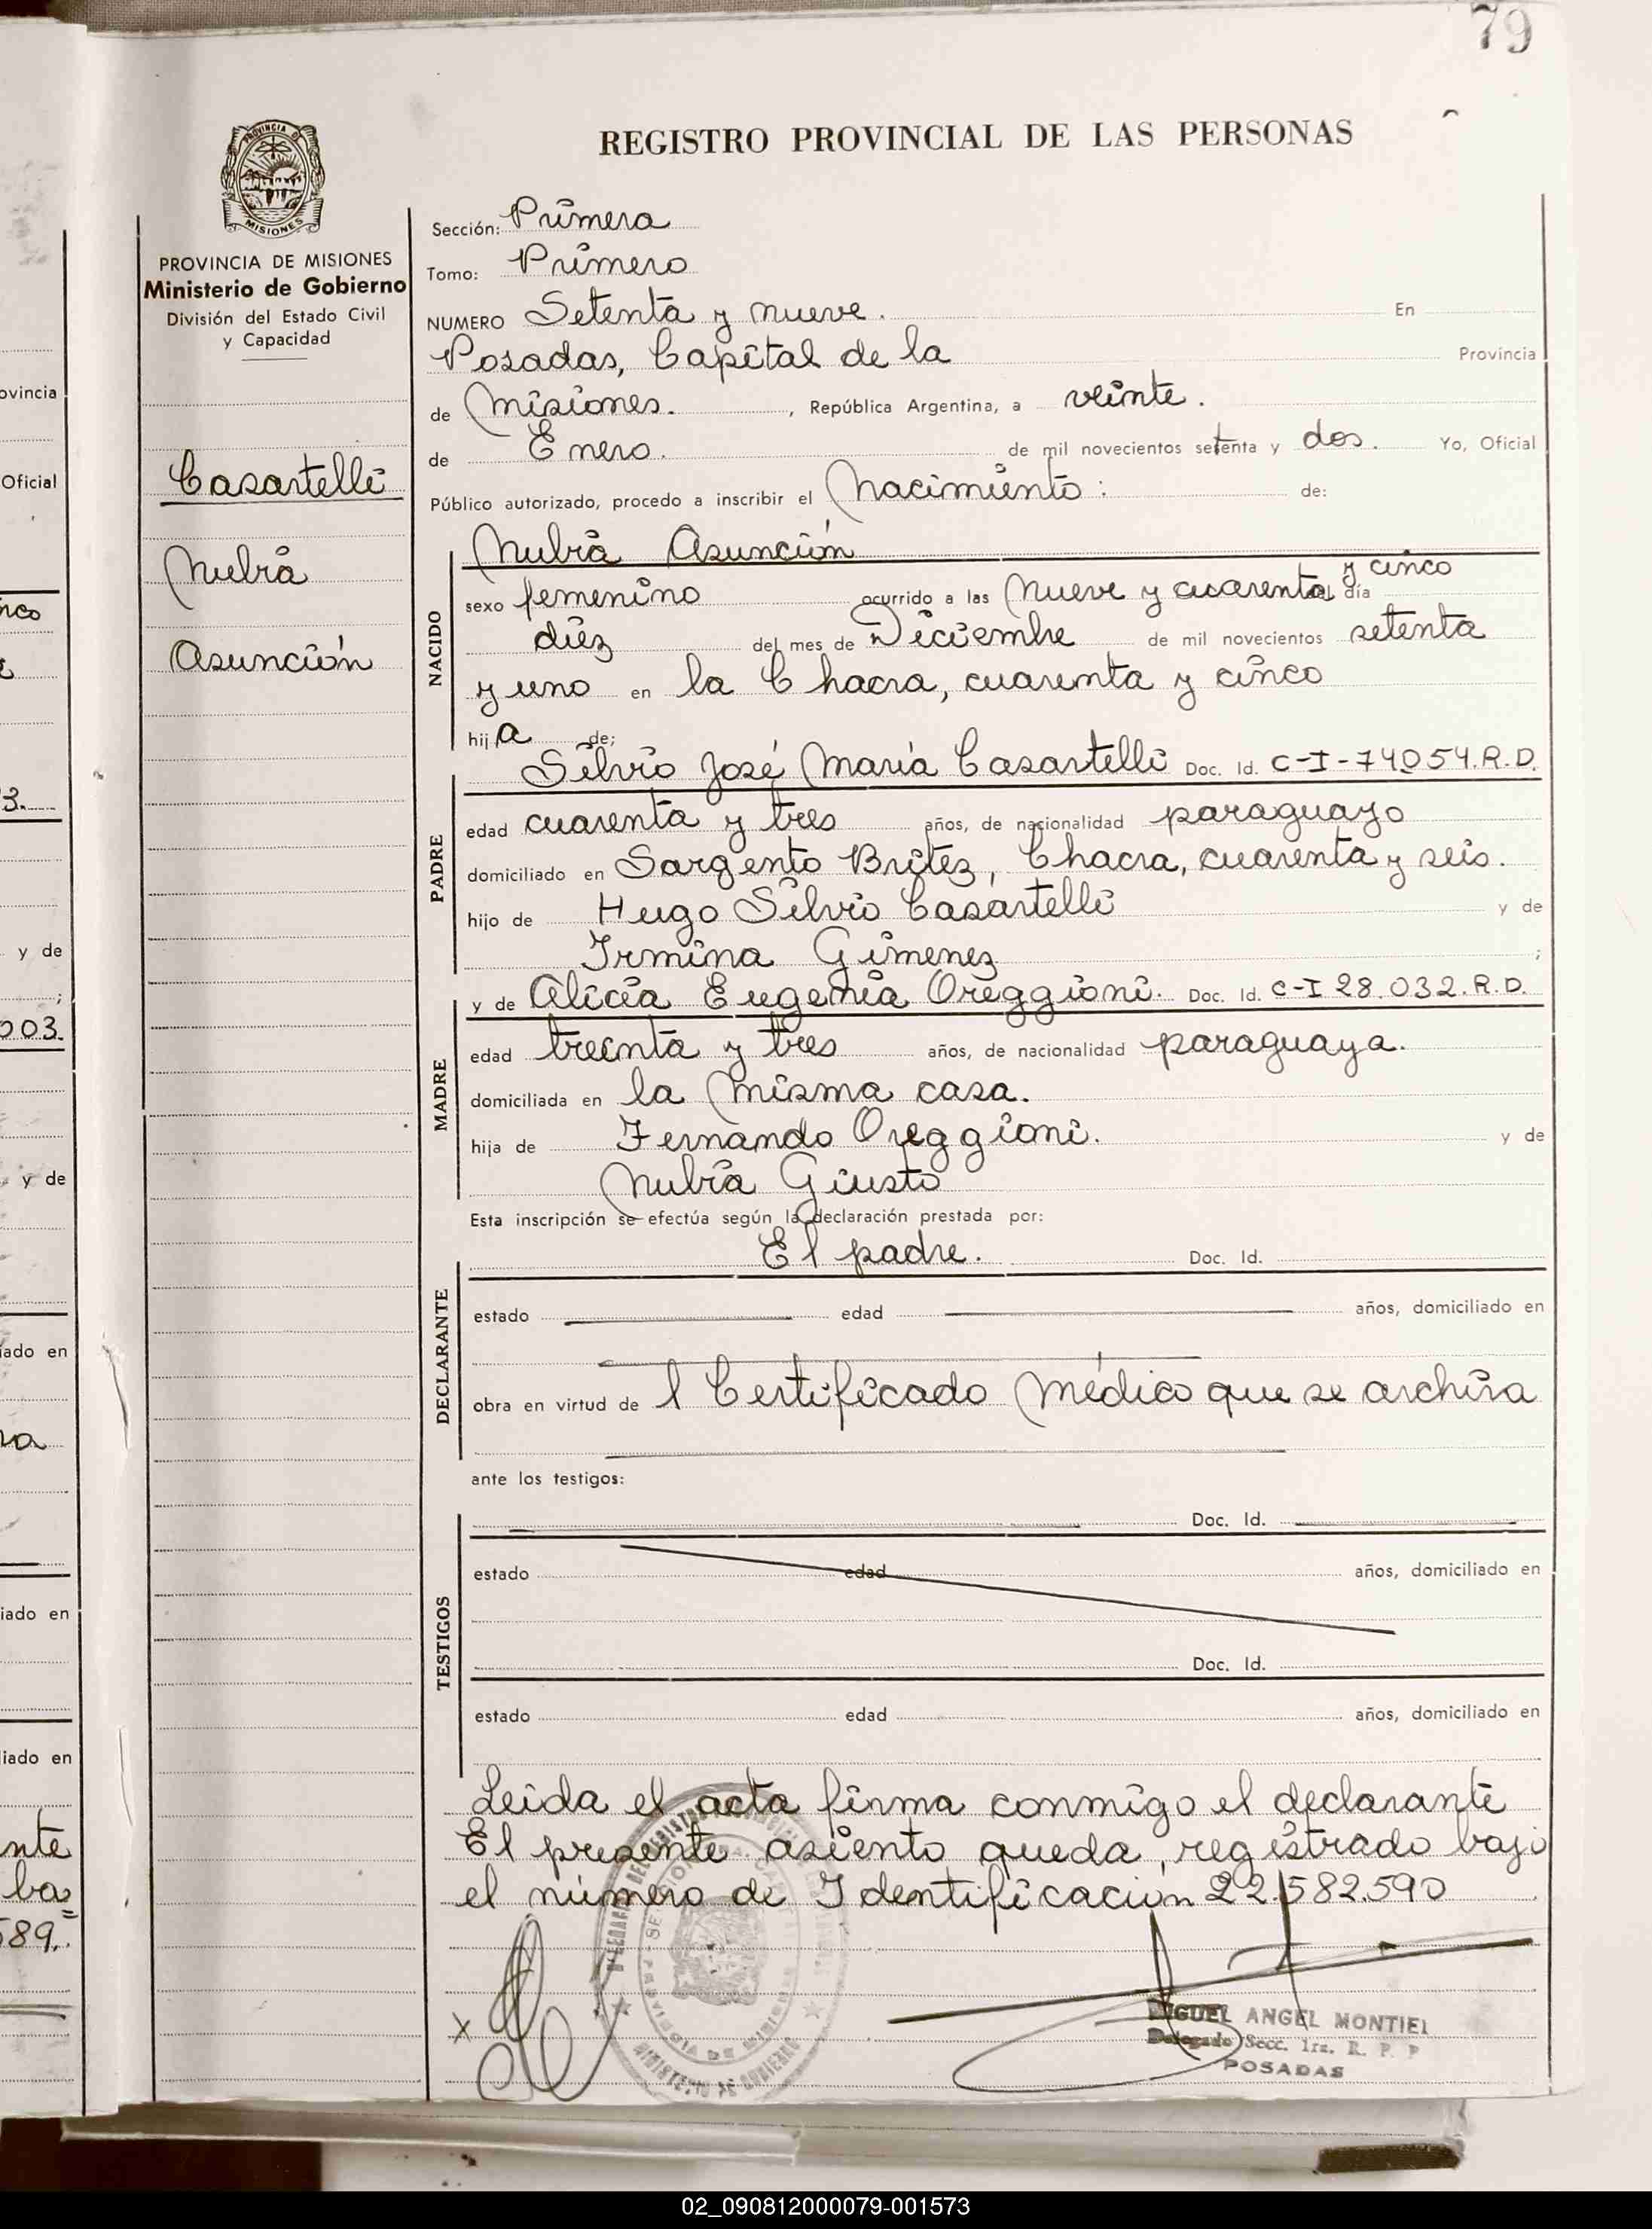 79
REGISTRO PROVINCIAL DE LAS PERSONAS
PROVINCIA DE
MISIONES
PROVINCIA DE MISIONES
Ministerio de Gobierno
División del Estado Civil
y Capacidad
Casartelli
Nubia
Asunción
Sección: Primera
Tomo: Primero
NUMERO Setenta y nueve. En
Posadas, Capital de la Provincia
de Misiones. , República Argentina, a veinte.
de Enero. de mil novecientos setenta y dos. Yo, Oficial
Público autorizado, procedo a inscribir el Nacimiento: de:
Nubia Asunción
NACIDO
y cinco
sexo femenino ocurrido a las Nueve y cuarenta día
diez del mes de Diciembre de mil novecientos setenta
y uno en la Chacra, cuarenta y cinco
hija de;
Silvio José María Casartelli Doc. Id. C-I-74054.R.D.
PADRE
edad cuarenta y tres años, de nacionalidad paraguayo
domiciliado en Sargento Britez, Chacra, cuarenta y seis.
hijo de Hugo Silvio Casartelli y de
Irmina Gimenez ;
y de Alicia Eugenia Oreggioni. Doc. Id. C-I 28.032.R.D.
MADRE
edad treinta y tres años, de nacionalidad paraguaya.
domiciliada en la misma casa.
hija de Fernando Oreggioni. y de
Nubia Giusto
Esta inscripción se efectúa según la declaración prestada por:
El padre. Doc. Id.
DECLARANTE
estado edad años, domiciliado en
obra en virtud de l Certificado Médico que se archiva
ante los testigos:
Doc. Id.
TESTIGOS
estado edad años, domiciliado en
Doc. Id.
estado edad años, domiciliado en
Leida el acta firma conmigo el declarante
El presente asiento queda, registrado bajo
el número de Identificación 22.582.590
x
MIGUEL ANGEL MONTIEL
Delegado Secc. 1ra. R. P. P
POSADAS
MINISTERIO DE GOBIERNO
ovincia
Oficial
nco
3.
y de
;
003.
y de
iado en
ra
iado en
liado en
nte
ba
589.
02_090812000079-001573